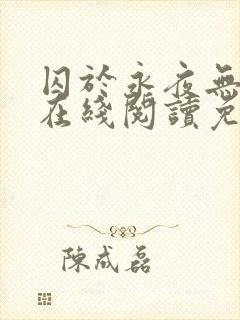 囚於永夜無
在綫閱讀免
陳成磊